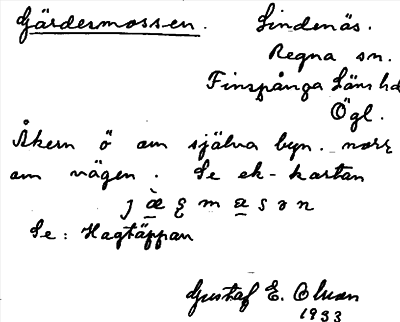 Gärdermossen. Lindenäs.
Regna sn.
Finspånga Läns hd
Ögl.
Åkern ö om själva byn. norr
om vägen. Se ek-kartan
Se: Hagtäppan
Gustaf E. Olsson
1933